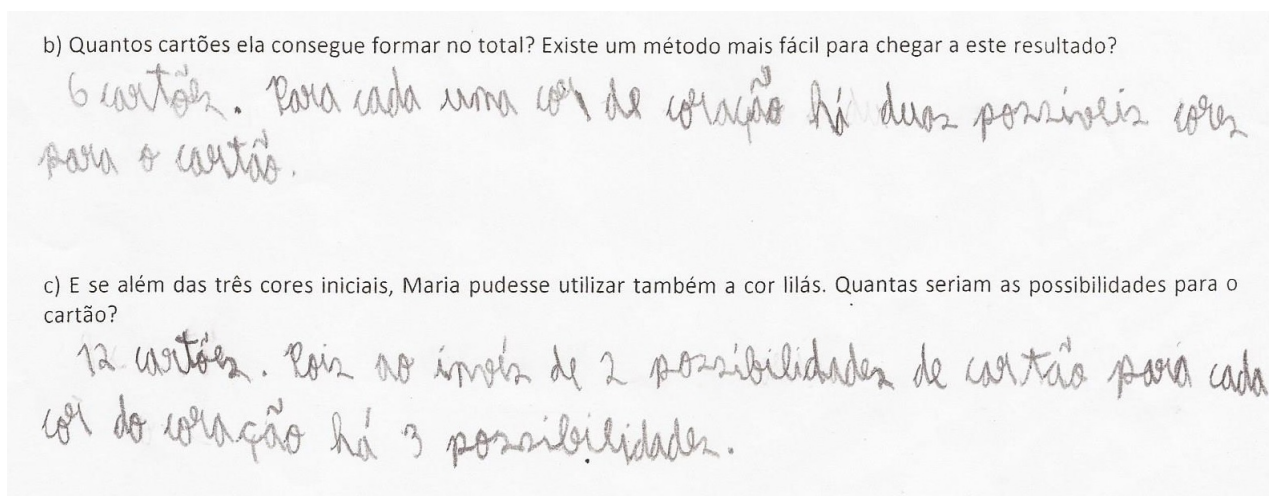 b) Quantos cartões ela consegue formar no total? Existe um método mais fácil para chegar a este resultado?
6 cartões. Para cada uma cor de coração há duas possíveis cores
para o cartão.
c) E se além das três cores iniciais, Maria pudesse utilizar também a cor lilás. Quantas seriam as possibilidades para o
cartão?
12 cartões. Pois ao invés de 2 possibilidades de cartão para cada
cor do coração há 3 possibilidades.